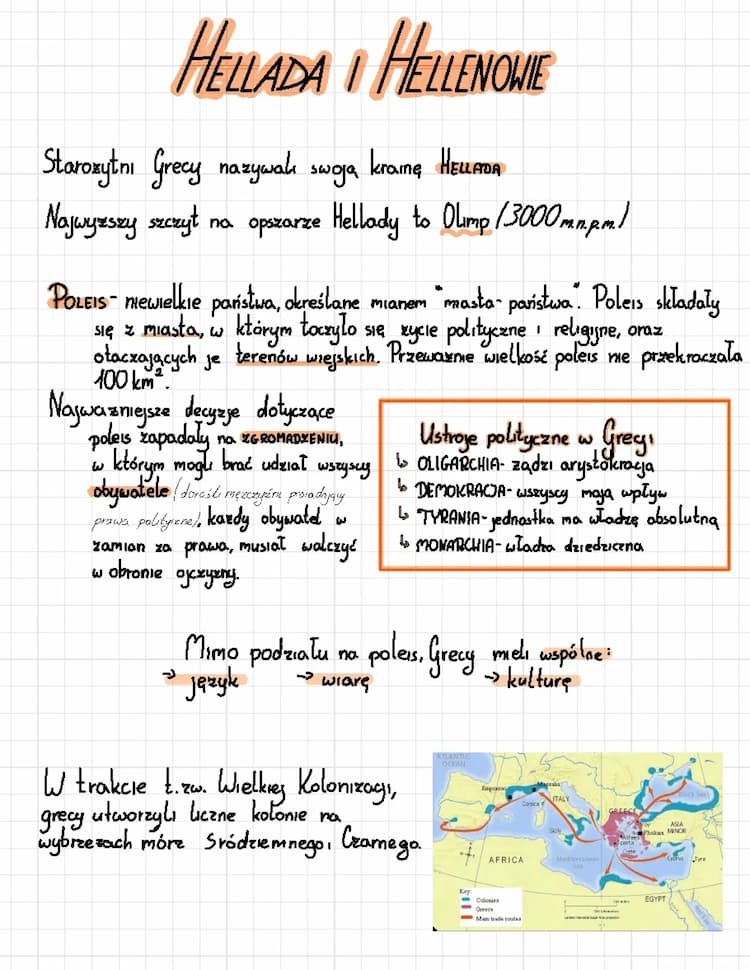 HELLADA I HELLENOWIE
Starożytni Grecy nazywali swoją krainę HELLADA
Najwyższy szczyt na opszarze Hellady to Olimp (3000 m.n.p.m.)
POLEIS - niewielkie państwa, określane mianem "miasta-państwa". Poleis składały
się z miasta, w którym toczyło się życie polityczne i religijne, oraz
otaczających je terenów wiejskich. Przeważnie wielkość poleis nie przekraczała
100 km².
Najważniejsze decyzje dotyczące
poleis zapadały na ZGROMADZENIU,
w którym mogli brać udział wszyscy
obywatele (dorośli mężczyźni posiadający
prawa polityczne), każdy obywatel w
zamian za prawa, musiał walczyć
w obronie ojczyzny.
Ustroje polityczne w Grecji
↳ OLIGARCHIA- żądzi arystokracja
↳ DEMOKRACJA- wszyscy mają wpływ
↳ TYRANIA- jednostka ma władzę absolutną
↳ MONARCHIA- władza dziedziczna
Mimo podziału na poleis, Grecy mieli wspólne:
→ język → wiarę → kulturę
W trakcie t.zw. Wielkiej Kolonizacji,
grecy utworzyli liczne kolonie na
wybrzeżach móre Śródziemnego i Czarnego.
ATLANTIC
OCEAN
Massalia
Emporion
ITALY
Corsica
Black Sea
GREECE
ASIA
MINOR
Sicily
Athens
Sparta
Crete
Cyprus
Tyre
AFRICA
Mediterranean
Sea
EGYPT
Key
Colonies
Greece
Main trade routes